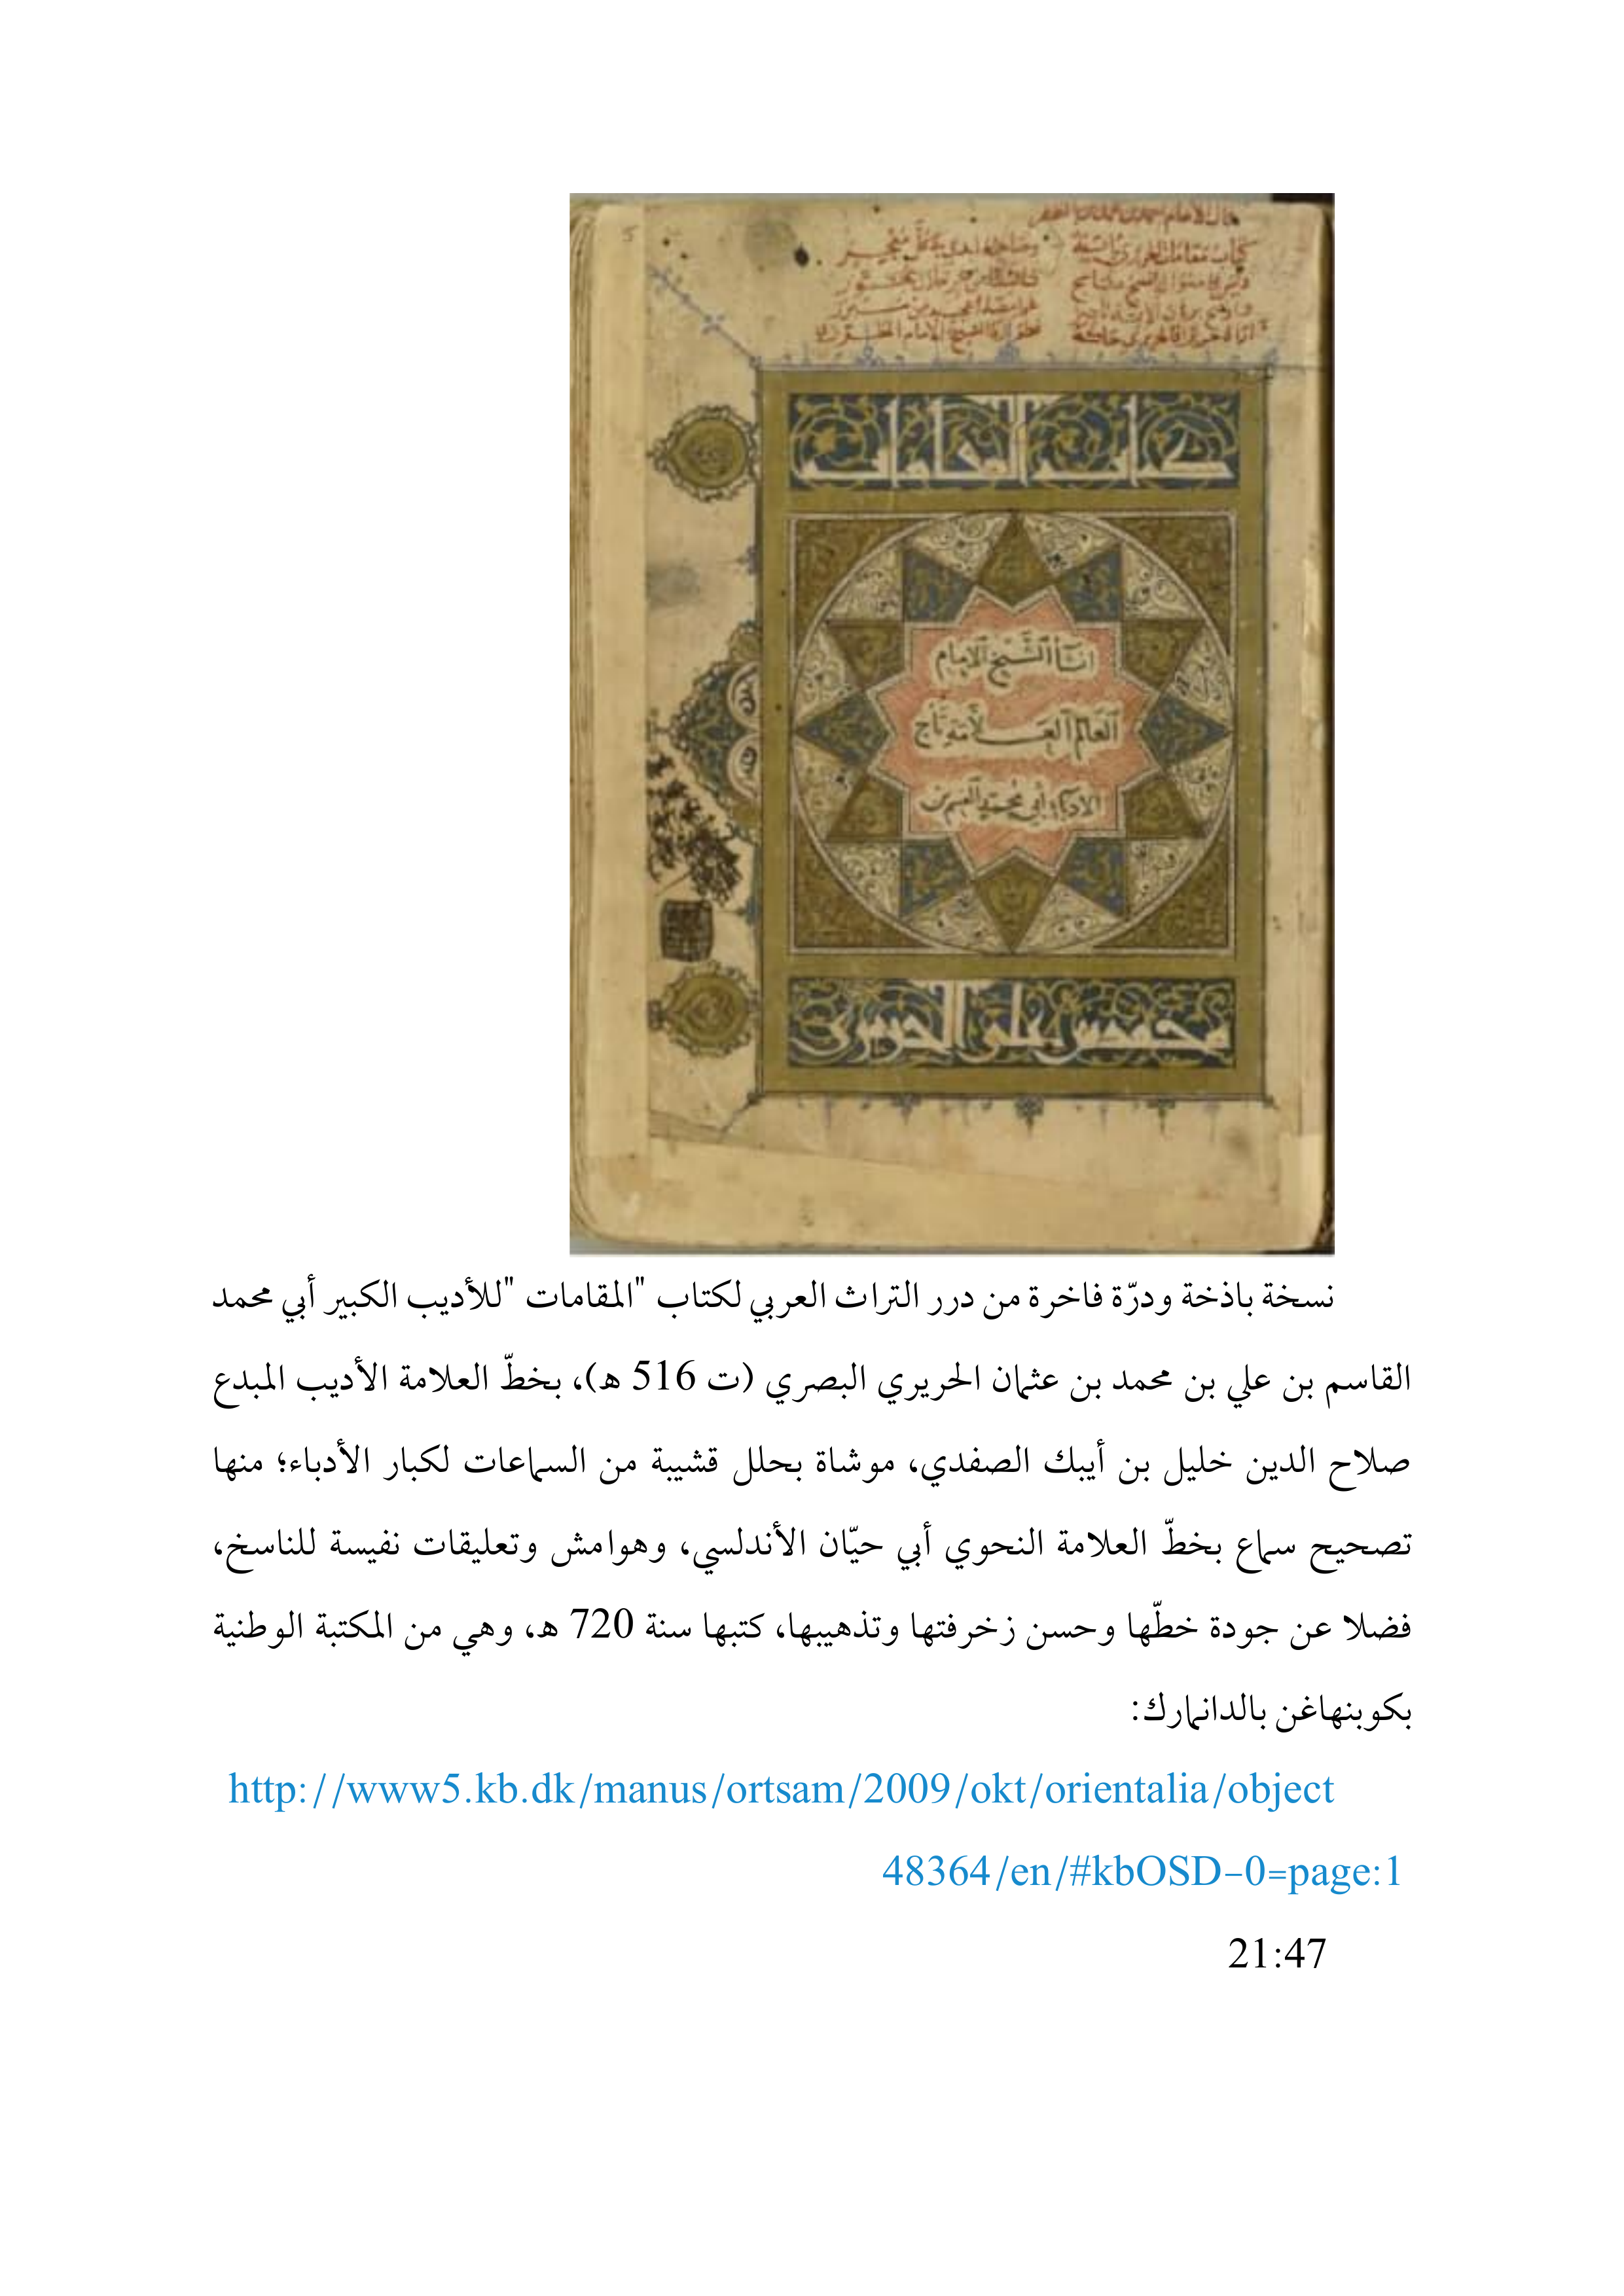 كتاب المقامات
الشيخ الإمام
العالم العلامة تاج
محمد بن علي الحريري
نسخة باذخة ودرّة فاخرة من درر التراث العربي لكتاب "المقامات "للأديب الكبير أبي محمد
القاسم بن علي بن محمد بن عثمان الحريري البصري (ت 516 ه)، بخطّ العلامة الأديب المبدع
صلاح الدين خليل بن أيبك الصفدي، موشاة بحلل قشيبة من السماعات لكبار الأدباء؛ منها
تصحيح سماع بخطّ العلامة النحوي أبي حيّان الأندلسي، وهوامش وتعليقات نفيسة للناسخ،
فضلا عن جودة خطّها وحسن زخرفتها وتذهيبها، كتبها سنة 720 ه، وهي من المكتبة الوطنية
بكوبنهاغن بالدانمارك:
http://www5.kb.dk/manus/ortsam/2009/okt/orientalia/object
48364/en/#kbOSD-0=page:1
21:47